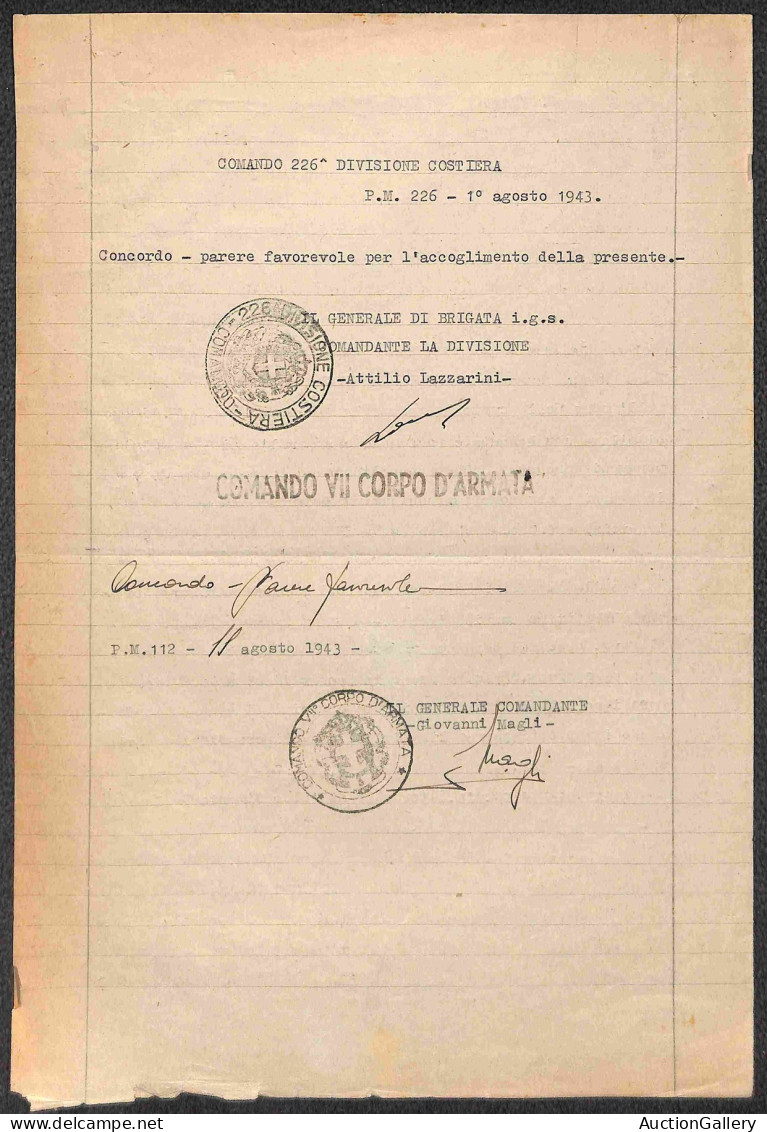 COMANDO 226^ DIVISIONE COSTIERA
P.M. 226 - 1° agosto 1943.
Concordo - parere favorevole per l'accoglimento della presente.-
IL GENERALE DI BRIGATA i.g.s.
COMANDANTE LA DIVISIONE
-Attilio Lazzarini-
COMANDO - 226 DIVISIONE COSTIERA -
COMANDO VII CORPO D'ARMATA
Concordo - Parere favorevole
P.M.112 - 11 agosto 1943 -
IL GENERALE COMANDANTE
-Giovanni Magli-
* COMANDO VII° CORPO D'ARMATA *
Magli
AuctionGallery